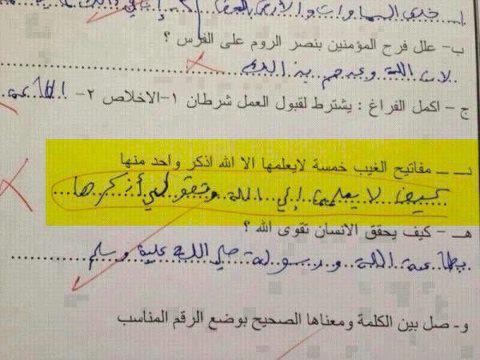 خلق السماوات والأرض
ب- علل فرح المؤمنين بنصر الروم على الفرس ؟
لان اللة وعدهم بذالك
ج - اكمل الفراغ : يشترط لقبول العمل شرطان ١-الاخلاص ٢- الطاعة
د - مفاتيح الغيب خمسة لايعلمها الا الله اذكر واحد منها
كيف لا يعلمها إلى اللة وتقولي أذكرها
هـ - كيف يحقق الانسان تقوى الله ؟
بطاعة اللة ورسولة صلى اللة علية وسلم
و- صل بين الكلمة ومعناها الصحيح بوضع الرقم المناسب